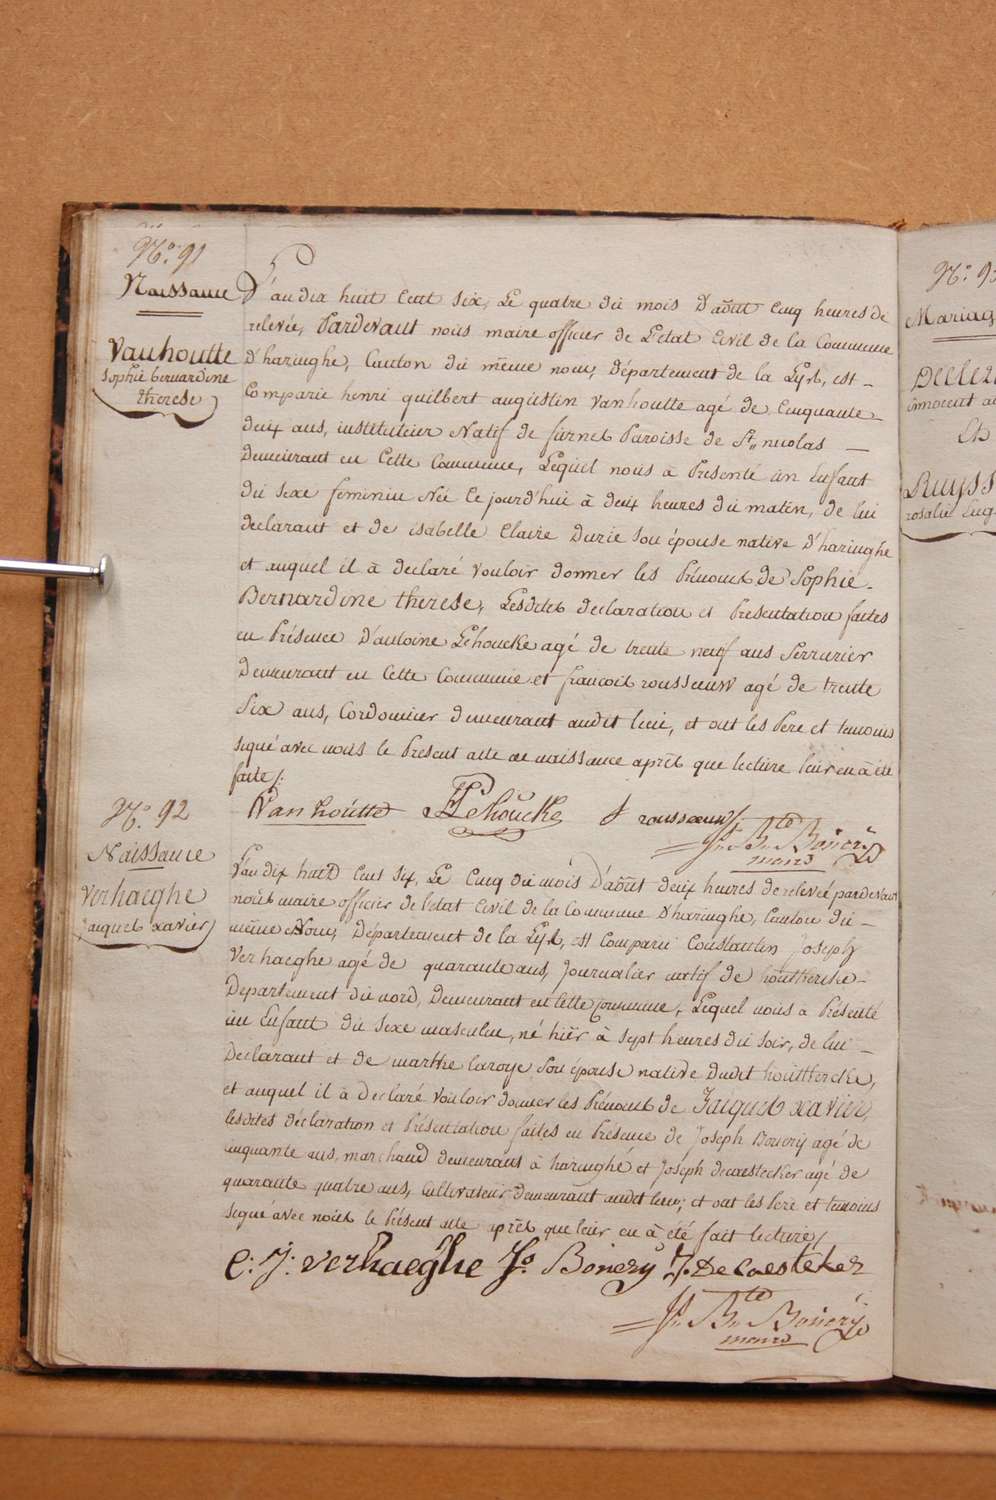 No. 91
Naissance
Vanhoutte
Sophie bernardine
therese
L'an dix huit Cent Six, Le quatre du mois D'aoùt Cinq heures de
relevée, Pardevant nous maire officier de L'etat Civil de la Commune
D'haringhe, Canton du même nom, département de la Lys, est
Comparû henri guilbert augustin vanhoutte agé de Cinquante
deux ans, instituteur Natif de furnes Paroisse de St. nicolas
Demeurant en Cette Commune, Lequel nous a Presenté un Enfant
du sexe feminin Née Ce jourd'hui à deux heures du matin, de lui
declarant et de isabelle Claire Durie son épouse native D'haringhe
et auquel il à declaré vouloir donner les Prénoms de Sophie
Bernardine therese, Lesdites declaration et Presentation faites
en Présence D'antoine Lehoucke agé de trente neuf ans Serrurier
Demeurant en Cette Commune et francois rousseeuw agé de trente
Six ans, Cordonnier demeurant audit lieu, et ont les Pere et temoins
signé avec nous le Present acte de naissance aprés que lecture leur en à été
faite /.
Vanhoutte Lehoucke f rousseeuw
Bte Bonery
maire
No. 92
Naissance
Verhaeghe
Jacques xavier
L'an dix huit Cent Six, Le Cinq du mois D'aoùt deux heures de relevée pardevant
nous maire officier de l'etat Civil de la Commune D'haringhe, Canton du
même Nom, Département de la Lys, est Comparû Constantin Joseph
Verhaeghe agé de quarante ans, Journalier natif de houtkercke
Departement du nord, demeurant en Cette Commune, Lequel nous a Présenté
un Enfant du sexe masculin, né hiér à sept heures du soir, de lui
Déclarant et de marthe laroye son épouse native dudit houttkercke,
et auquel il à Declaré vouloir donner les Prénoms de Jacques xavier,
lesdites déclaration et Présentation faites en Présence de Joseph Bonery agé de
cinquante ans, marchand demeurant à haringhé et Joseph decaestecker agé de
quarante quatre ans, Cultivateur demeurant audit lieu, et ont les Pere et temoins
signé avec nous le Présent acte aprés que leur en à été fait lecture /
C: J: Verhaeghe Jo Bonery J. De Caesteker
Bte Bonery
maire
No. 93
Mariag
Declerc
innocent a
Et
Ruyss
rosalie Eug